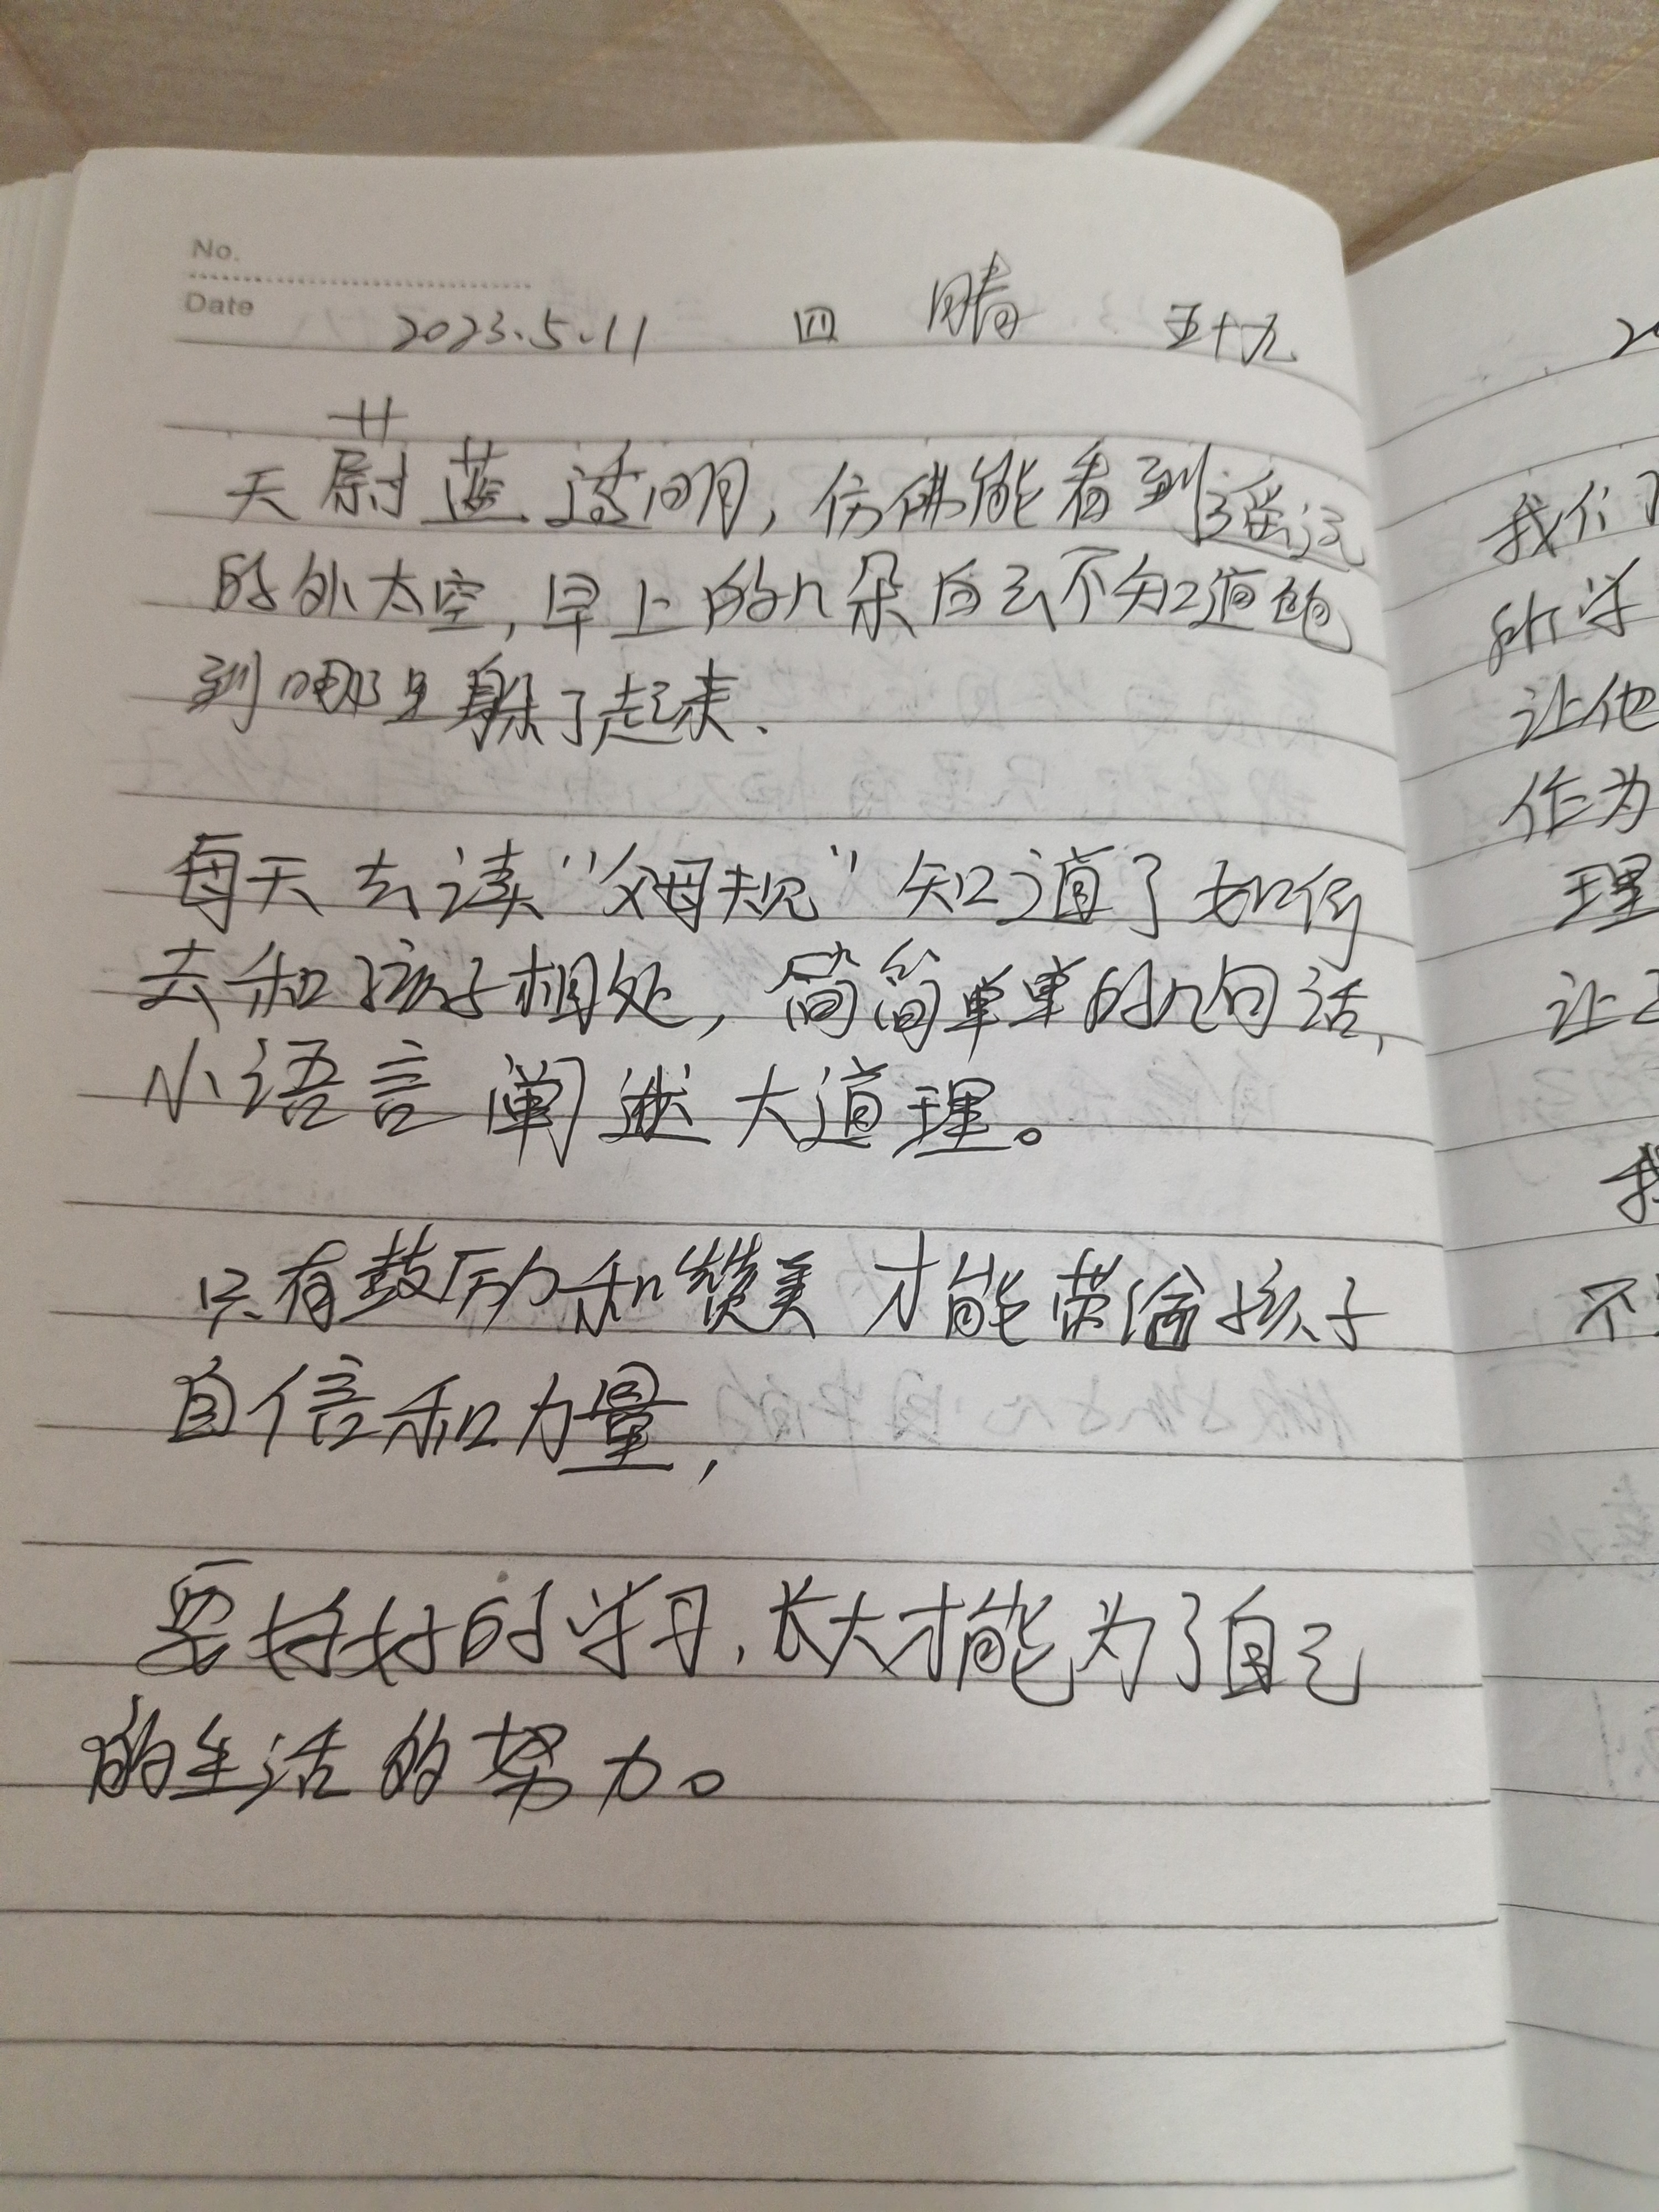 No.
Date 2023.5.11 四 晴 五十九
天蔚蓝透明，仿佛能看到遥远
的外太空，早上的几朵白云不知道跑
到哪里躲了起来、
每天去读“父母规”知道了如何
去和孩子相处，简简单单的几句话，
小语言阐述大道理。
只有鼓励和赞美才能带给孩子
自信和力量，
要好好的学习，长大才能为了自己
的生活的努力。
20
我们
所学
让他
作为
理
让
我
不